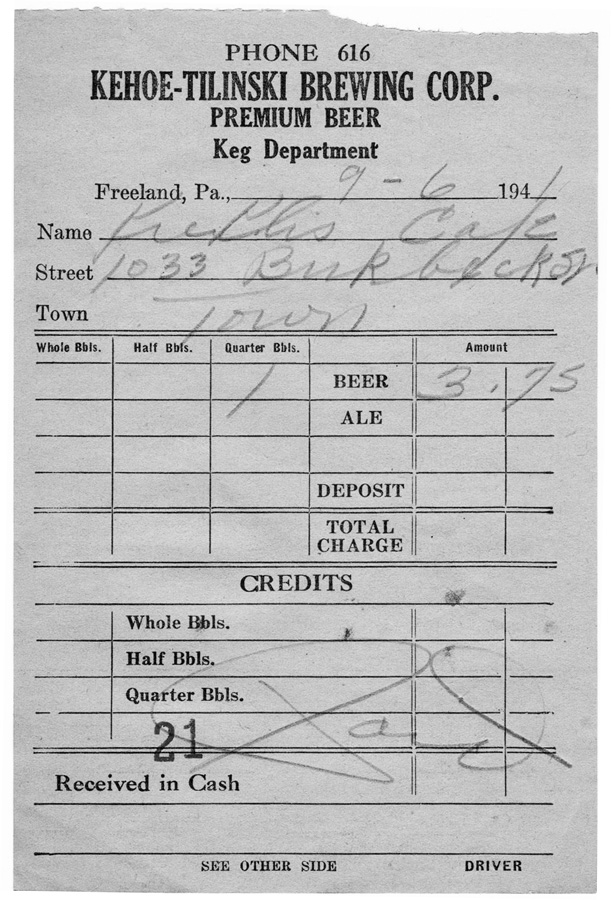 PHONE 616
KEHOE-TILINSKI BREWING CORP.
PREMIUM BEER
Keg Department
Freeland, Pa., 9-6 1941
Name Cafe
Street 1033 Birkbeck St
Town Town
Whole Bbls. Half Bbls. Quarter Bbls. Amount
1 BEER 3.75
ALE
DEPOSIT
TOTAL
CHARGE
CREDITS
Whole Bbls.
Half Bbls.
Quarter Bbls.
21 Paid
Received in Cash
SEE OTHER SIDE DRIVER